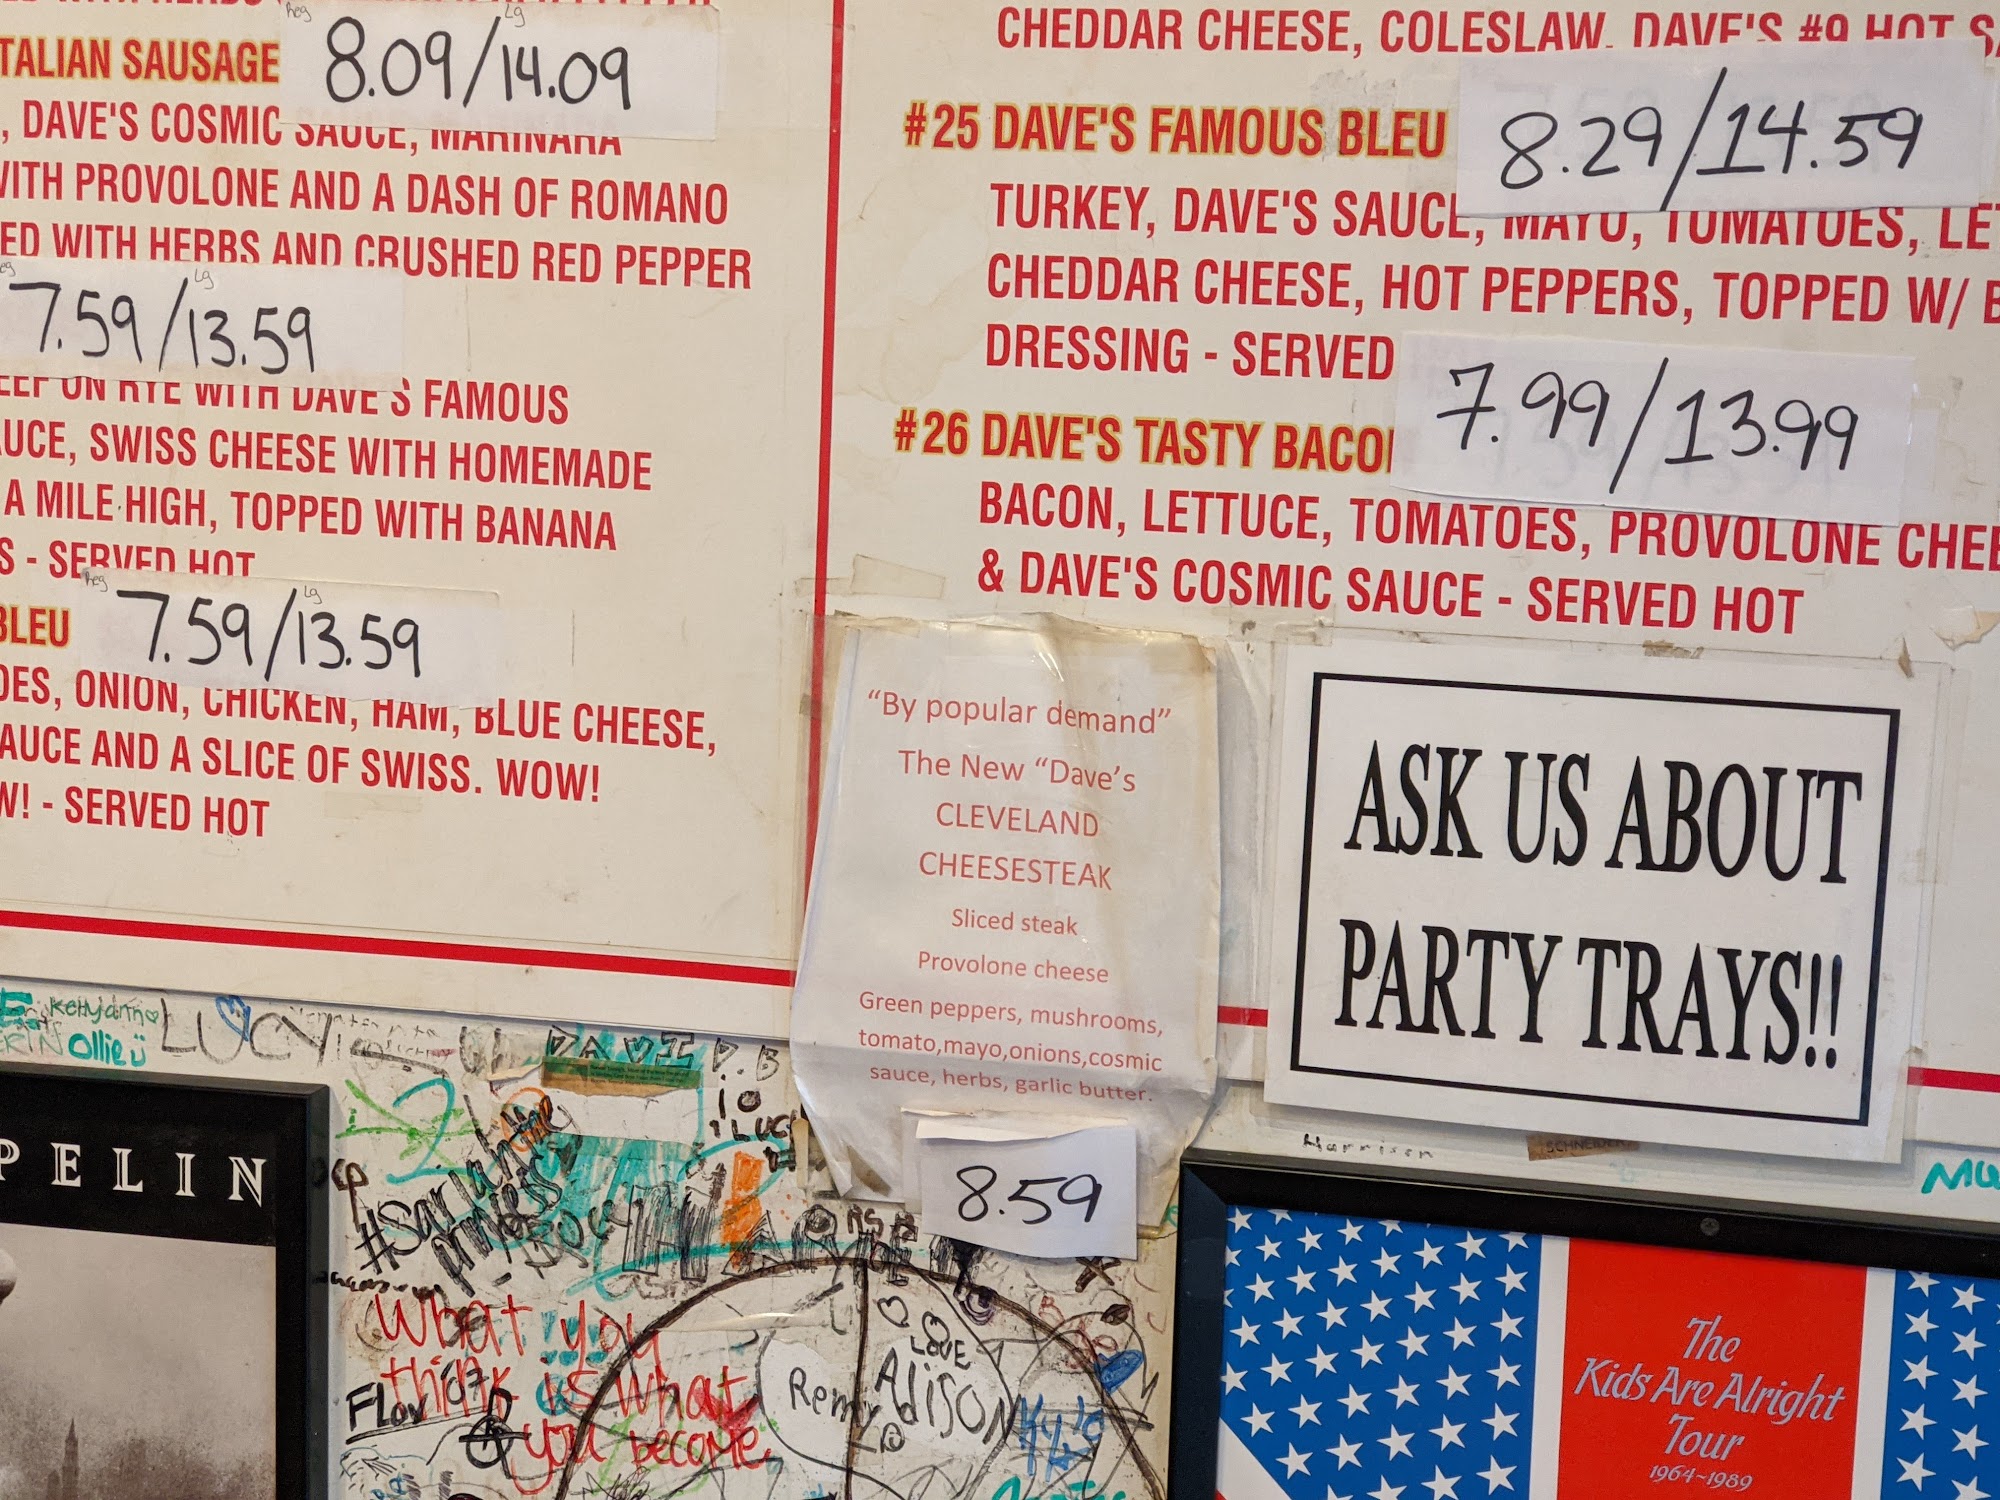 Reg Lg
TALIAN SAUSAGE 8.09/14.09
, DAVE'S COSMIC SAUCE, MARINARA
WITH PROVOLONE AND A DASH OF ROMANO
ED WITH HERBS AND CRUSHED RED PEPPER
Lg
7.59/13.59
ON RYE WITH DAVE'S FAMOUS
AUCE, SWISS CHEESE WITH HOMEMADE
A MILE HIGH, TOPPED WITH BANANA
S - SERVED HOT
Reg Lg
BLEU 7.59/13.59
OES, ONION, CHICKEN, HAM, BLUE CHEESE,
AUCE AND A SLICE OF SWISS. WOW!
W! - SERVED HOT
CHEDDAR CHEESE, COLESLAW, DAVE'S #9 HOT SA
#25 DAVE'S FAMOUS BLEU 8.29/14.59
TURKEY, DAVE'S SAUCE, MAYO, TOMATOES, LET
CHEDDAR CHEESE, HOT PEPPERS, TOPPED W/ B
DRESSING - SERVED
#26 DAVE'S TASTY BACON 7.99/13.99
BACON, LETTUCE, TOMATOES, PROVOLONE CHEE
& DAVE'S COSMIC SAUCE - SERVED HOT
"By popular demand"
The New "Dave's
CLEVELAND
CHEESESTEAK
Sliced steak
Provolone cheese
Green peppers, mushrooms,
tomato,mayo,onions,cosmic
sauce, herbs, garlic butter.
8.59
ASK US ABOUT
PARTY TRAYS!!
Ollie
LUCY
DAVID.B
PELIN
Harrison
SCHNEIDER
What you
think is what
you become.
LOVE
Remy
Alison
The
Kids Are Alright
Tour
1964-1989